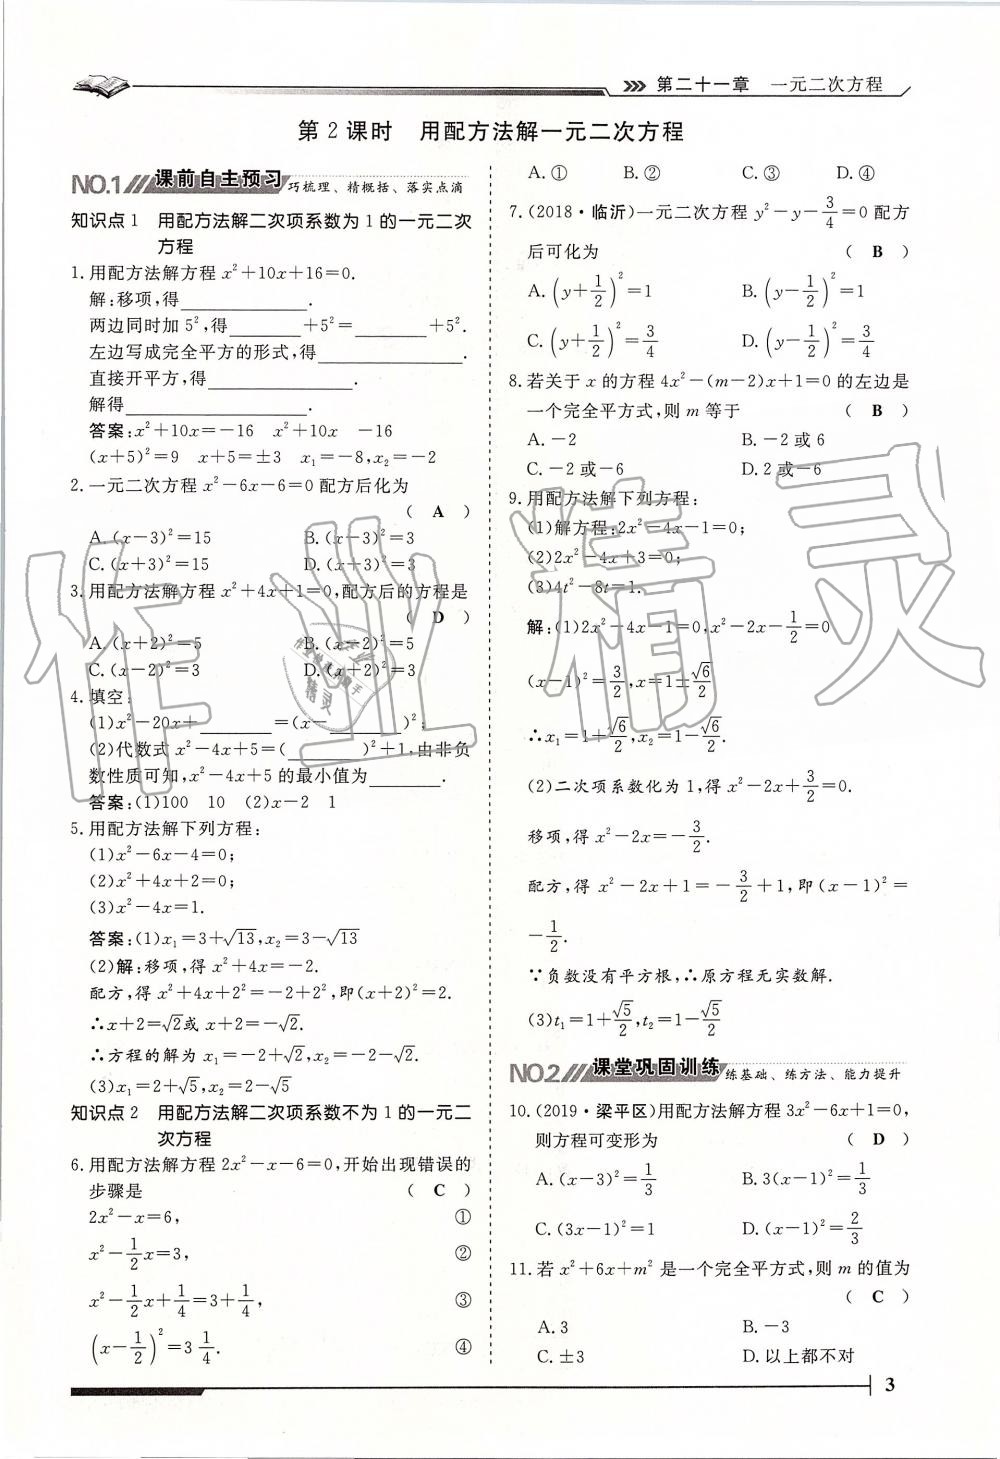 第二十一章 一元二次方程
第2课时 用配方法解一元二次方程
NO.1 课前自主预习 巧梳理、精概括、落实点滴
知识点1 用配方法解二次项系数为1的一元二次
方程
1.用配方法解方程 x²+10x+16=0.
解:移项,得____________.
两边同时加5²,得______+5²=______+5².
左边写成完全平方的形式,得____________.
直接开平方,得____________.
解得________________.
答案:x²+10x=-16 x²+10x -16
(x+5)²=9 x+5=±3 x₁=-8,x₂=-2
2.一元二次方程 x²-6x-6=0配方后化为
( A )
A.(x-3)²=15 B.(x-3)²=3
C.(x+3)²=15 D.(x+3)²=3
3.用配方法解方程 x²+4x+1=0,配方后的方程是
( D )
A.(x+2)²=5 B.(x-2)²=5
C.(x-2)²=3 D.(x+2)²=3
4.填空:
(1)x²-20x+______=(x-______)²;
(2)代数式 x²-4x+5=(______)²+1,由非负
数性质可知,x²-4x+5的最小值为______.
答案:(1)100 10 (2)x-2 1
5.用配方法解下列方程:
(1)x²-6x-4=0;
(2)x²+4x+2=0;
(3)x²-4x=1.
答案:(1)x₁=3+√13,x₂=3-√13
(2)解:移项,得 x²+4x=-2.
配方,得 x²+4x+2²=-2+2²,即(x+2)²=2.
∴x+2=√2或 x+2=-√2.
∴方程的解为 x₁=-2+√2,x₂=-2-√2.
(3)x₁=2+√5,x₂=2-√5
知识点2 用配方法解二次项系数不为1的一元二
次方程
6.用配方法解方程 2x²-x-6=0,开始出现错误的
步骤是 ( C )
2x²-x=6, ①
x²-1/2x=3, ②
x²-1/2x+1/4=3+1/4, ③
(x-1/2)²=3 1/4. ④
A.① B.② C.③ D.④
7.(2018·临沂)一元二次方程 y²-y-3/4=0配方
后可化为 ( B )
A.(y+1/2)²=1 B.(y-1/2)²=1
C.(y+1/2)²=3/4 D.(y-1/2)²=3/4
8.若关于 x 的方程 4x²-(m-2)x+1=0 的左边是
一个完全平方式,则 m 等于 ( B )
A.-2 B.-2或6
C.-2或-6 D.2或-6
9.用配方法解下列方程:
(1)解方程:2x²-4x-1=0;
(2)2x²-4x+3=0;
(3)4t²-8t=1.
解:(1)2x²-4x-1=0,x²-2x-1/2=0
(x-1)²=3/2,x=1±√6/2
∴x₁=1+√6/2,x₂=1-√6/2.
(2)二次项系数化为1,得 x²-2x+3/2=0.
移项,得 x²-2x=-3/2.
配方,得 x²-2x+1=-3/2+1,即(x-1)²=
-1/2.
∵负数没有平方根,∴原方程无实数解.
(3)t₁=1+√5/2,t₂=1-√5/2
NO.2 课堂巩固训练 练基础、练方法、能力提升
10.(2019·梁平区)用配方法解方程 3x²-6x+1=0,
则方程可变形为 ( D )
A.(x-3)²=1/3 B.3(x-1)²=1/3
C.(3x-1)²=1 D.(x-1)²=2/3
11.若 x²+6x+m² 是一个完全平方式,则 m 的值为
( C )
A.3 B.-3
C.±3 D.以上都不对
3
作业精灵